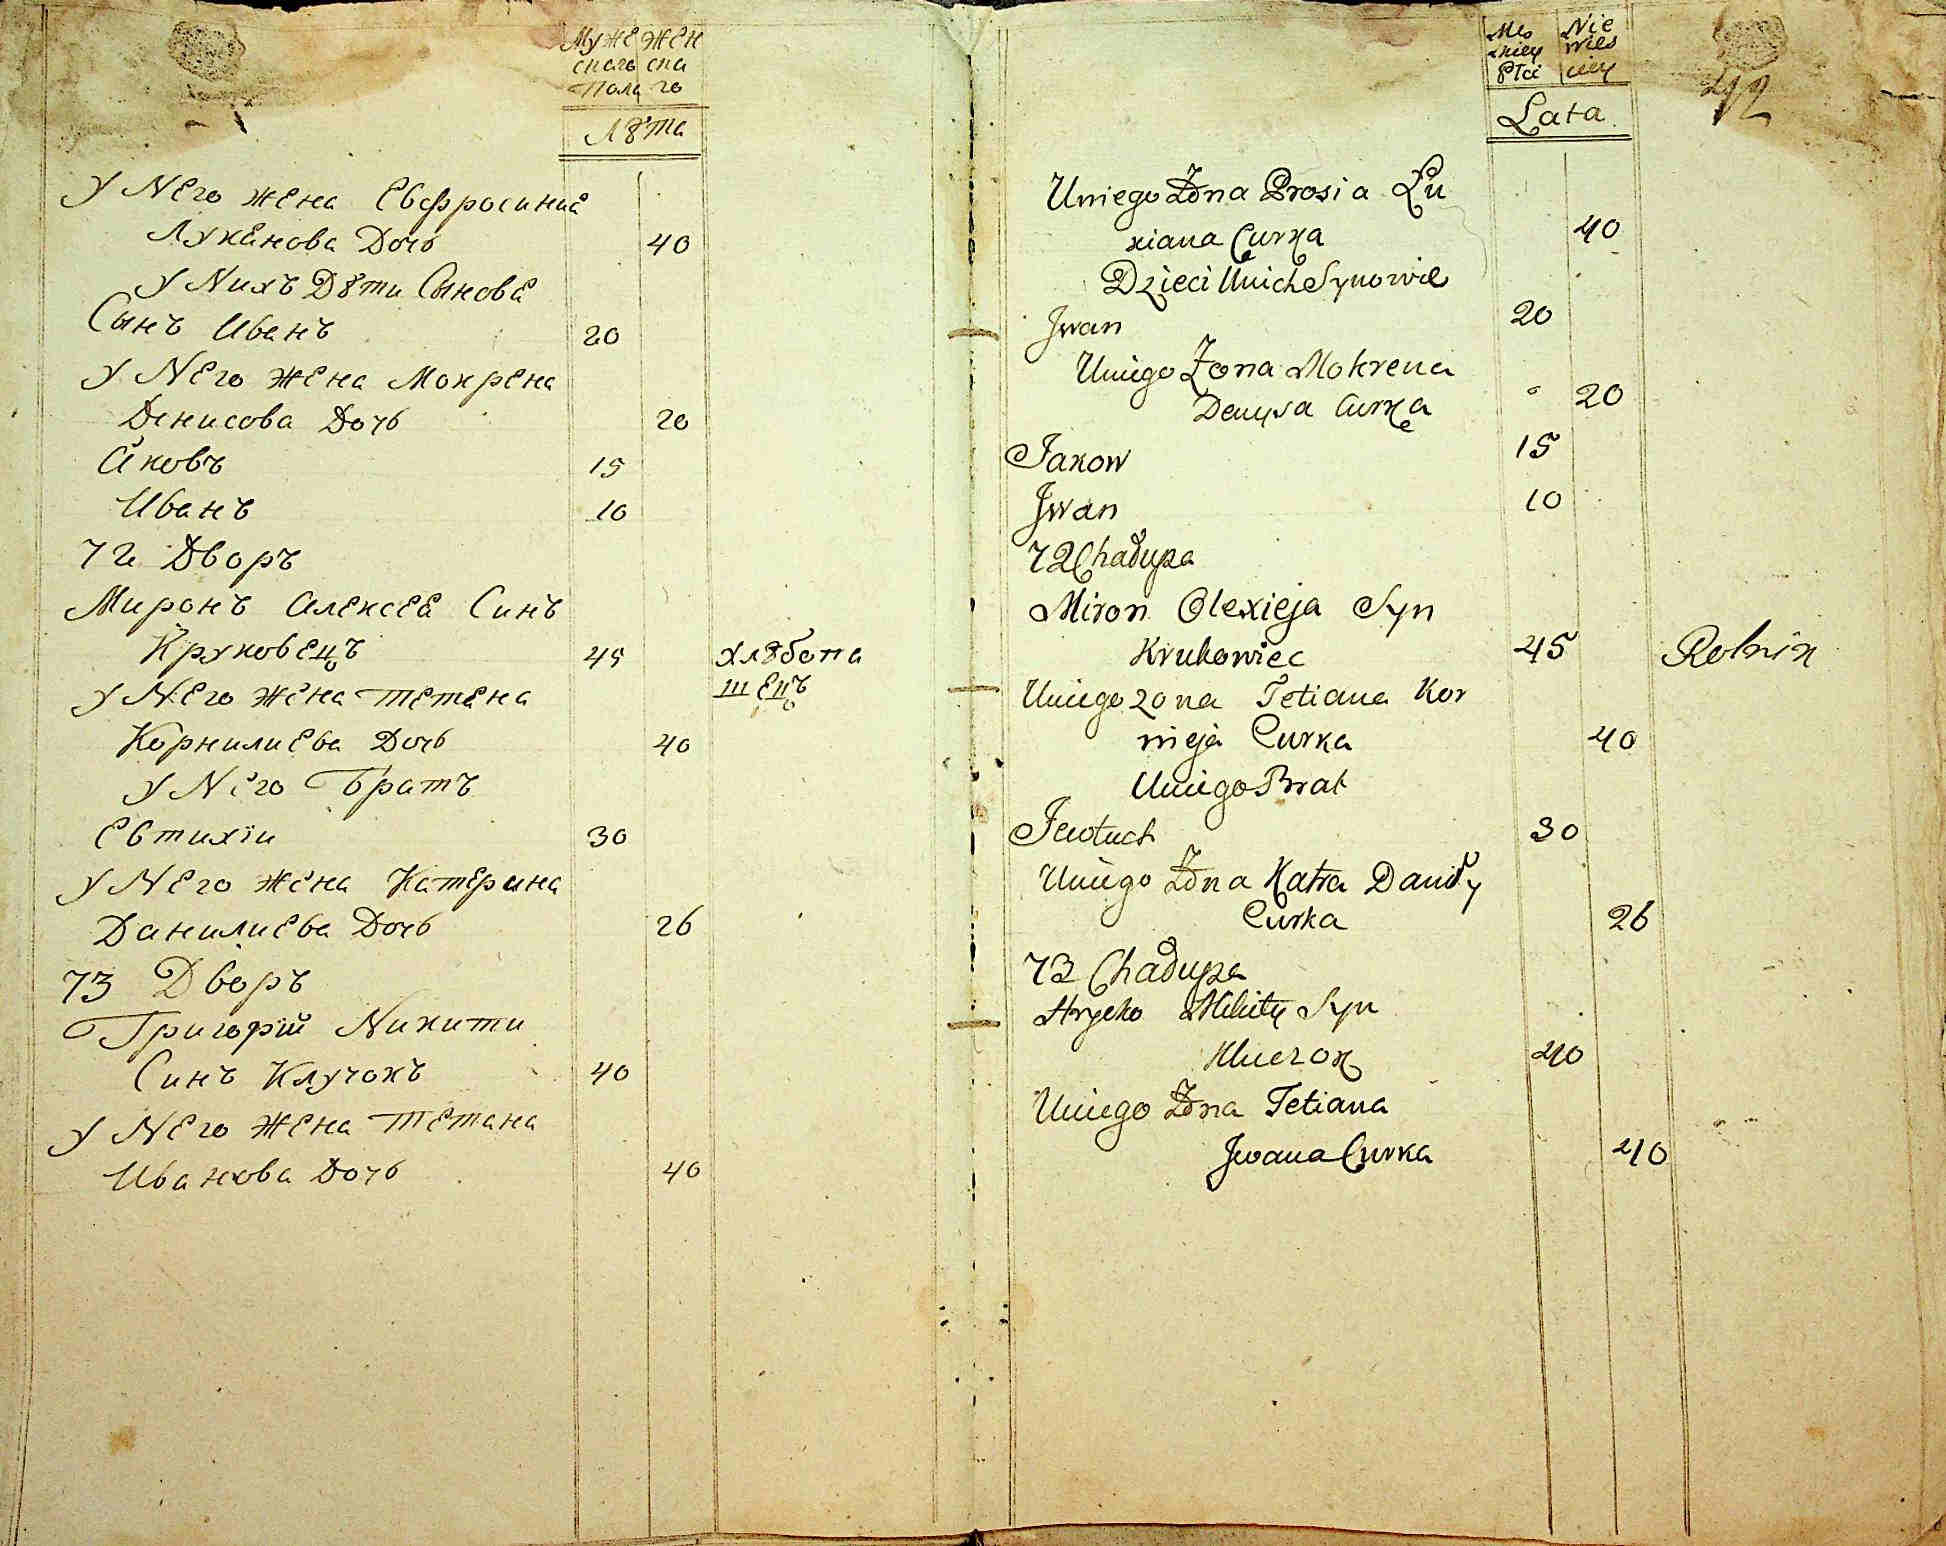 Муже жен
скаго ска
Пола го
Лѣта
У Него жена Евфросиниа
Луканова Дочь 40
У Нихъ Дѣти Сыновѣ
Сынъ Иванъ 20
У Него жена Мокрена
Денисова Дочь 20
Яковъ 15
Иванъ 10
72 Дворъ
Миронъ Алексея Синъ
Круковецъ 45 хлѣбопа
шецъ
У Него жена Тетяна
Корнилиева Дочь 40
У Него Братъ
Евтихіи 30
У Него жена Катерина
Данилиева Дочь 26
73 Дворъ
Григорій Никити
Синъ Клучокъ 40
У Него жена Тетяна
Иванова Дочь 40
Męs Nie
kiey wies
Płci ciey
Lata
U niego Żona Prosia Łu
kiana Curka 40
Dzieci U nich Synowie
Jwan 20
U niego Żona Mokrena
Denysa Curka 20
Jakow 15
Jwan 10
72 Chałupa
Miron Olexieja Syn
Krukowiec 45 Rolnik
U niego żona Tetiana Kor
nieja Curka 40
U niego Brat
Jewtuch 30
U niego Żona Katra Daniły
Curka 26
73 Chałupa
Hryćko Mikity Syn
Kluczok 40
U niego Żona Tetiana
Jwana Curka 40